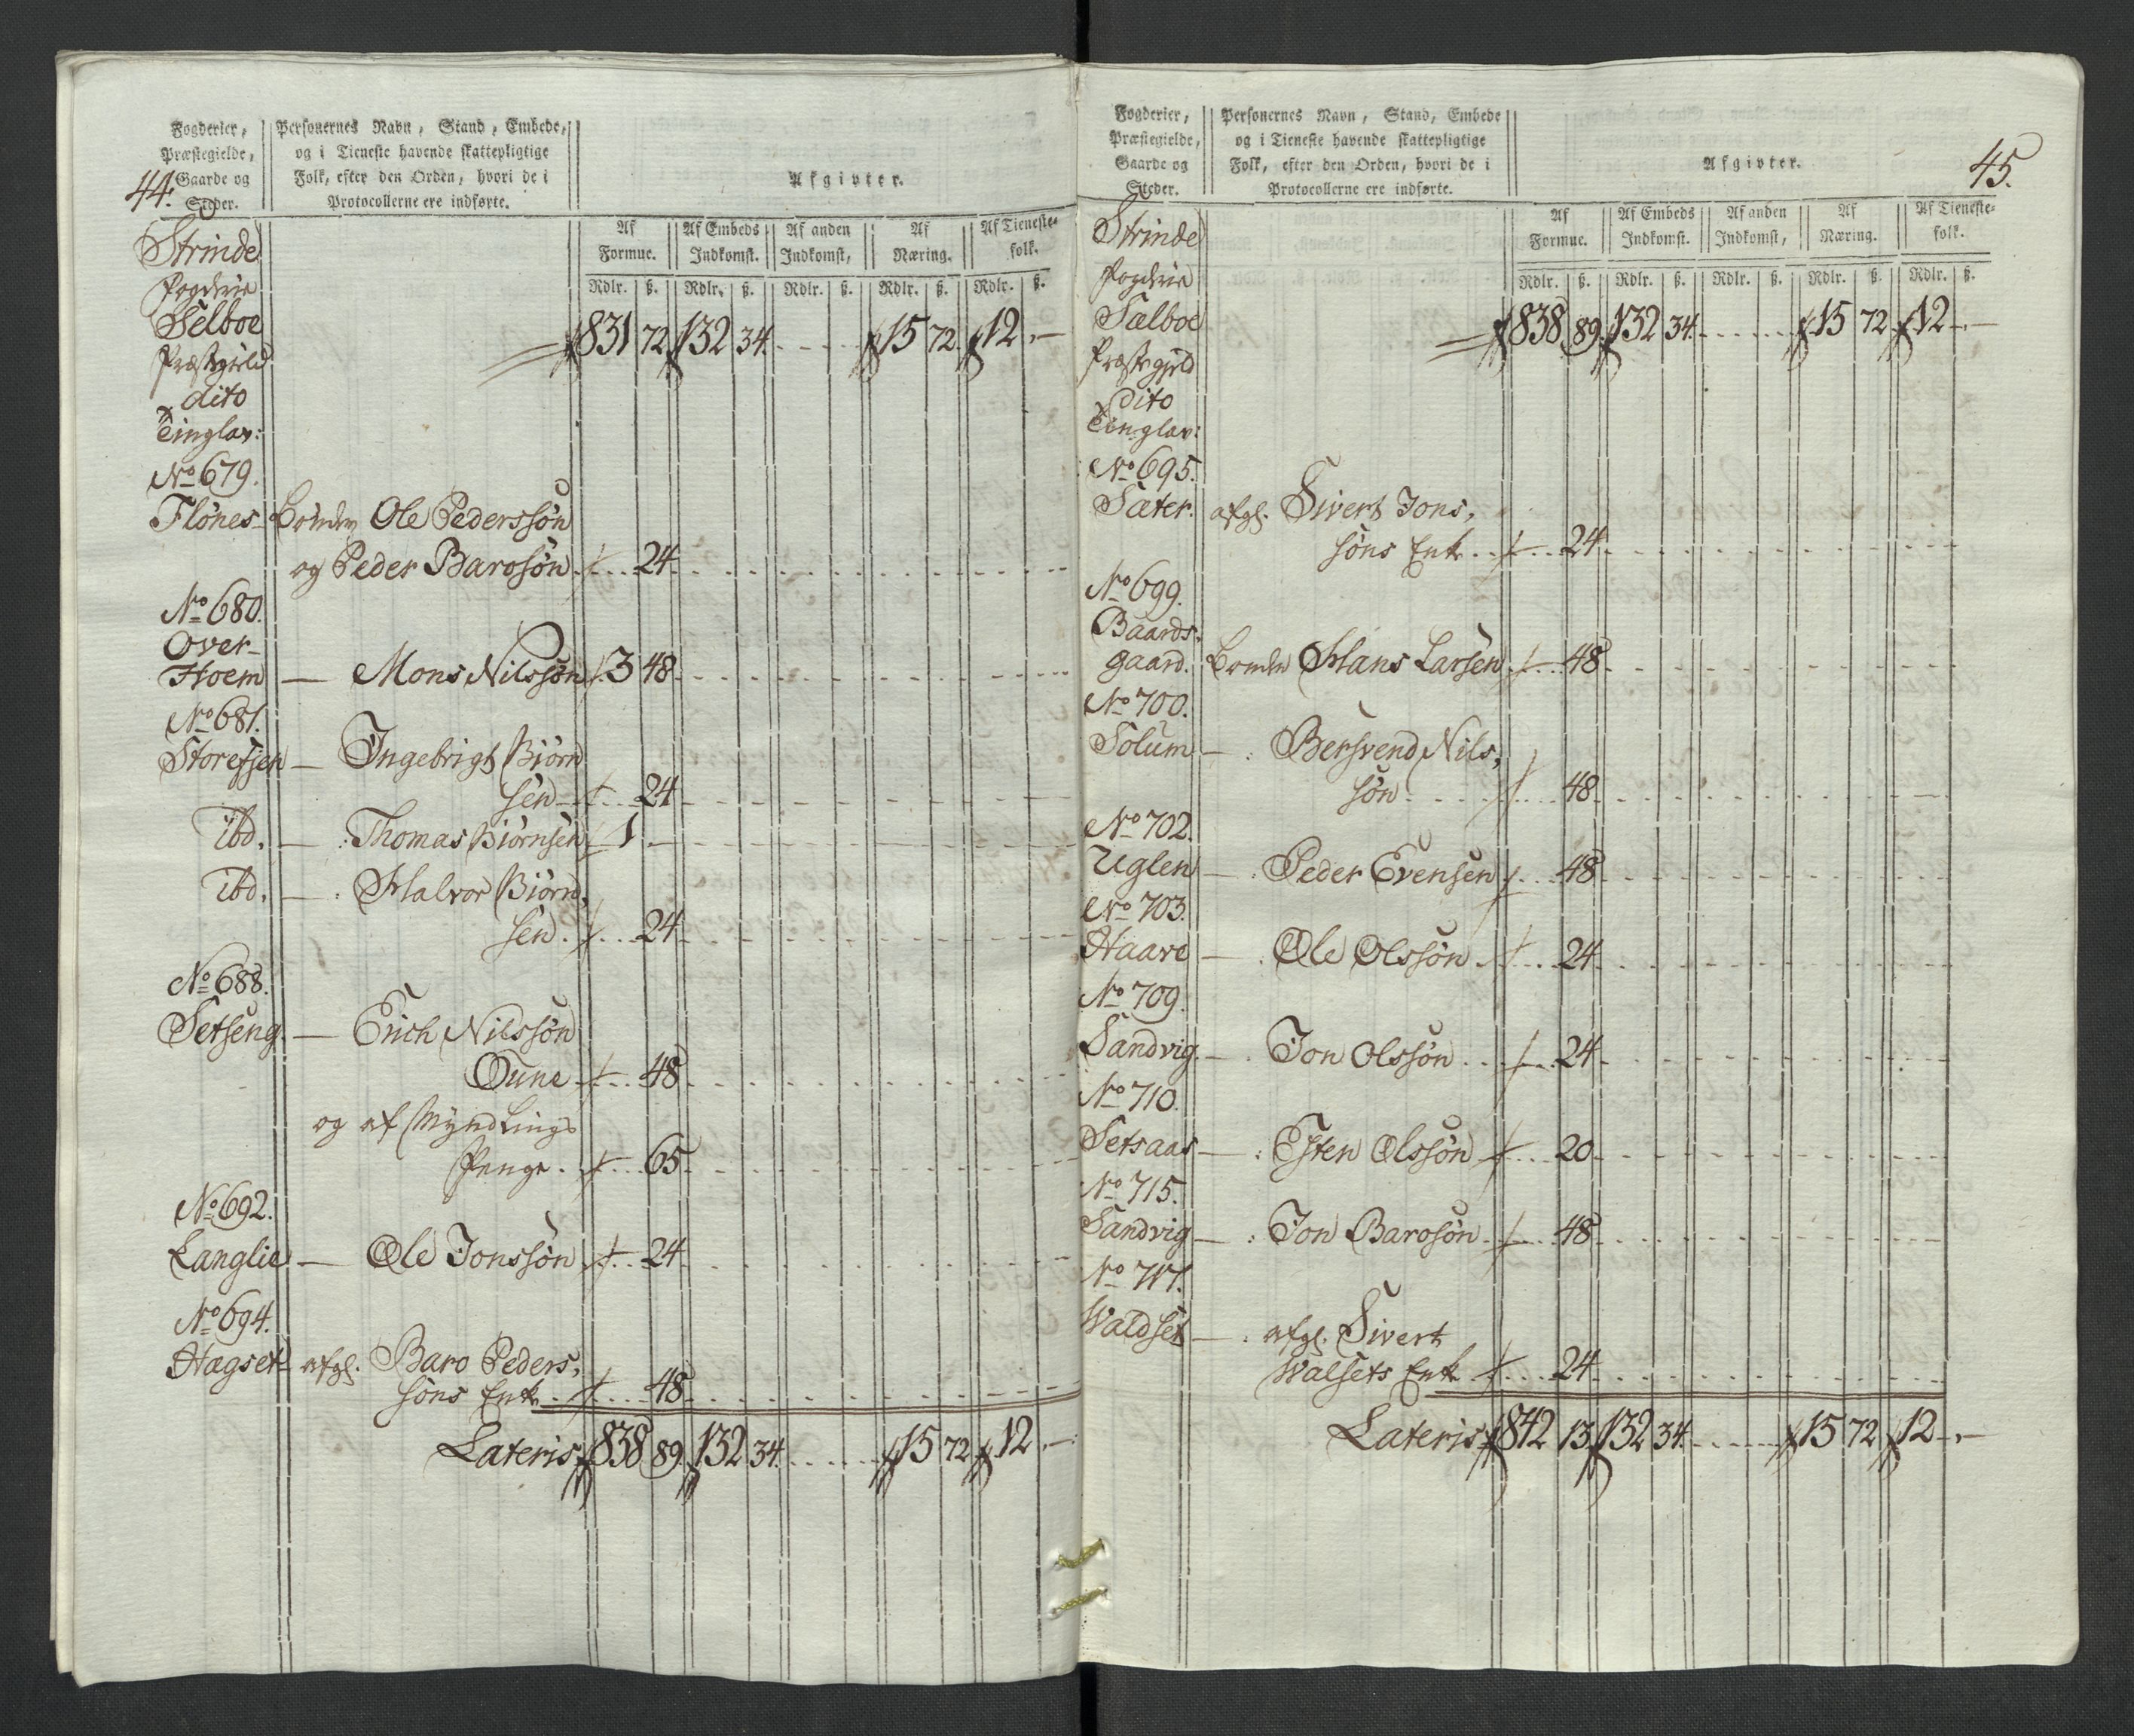 Fogderier,
Præstegielde,
Gaarde og
Steder.
Personernes Navn, Stand, Embede,
og i Tieneste havende skattepligtige
Folk, efter den Orden, hvori de i
Protocollerne ere indførte.
Afgivter.
44.
Af
Formue.
Af Embeds
Indkomst.
Af anden
Indkomst,
Af
Næring.
Af Tieneste-
folk.
Rdlr. ß. Rdlr. ß. Rdlr. ß. Rdlr. ß. Rdlr. ß.
Strinde
Fogderie
Selboe 831 72 132 34 15 72 12 -
Præstegield
dito
Tinglav:
No 679.
Flønes Bonden Ole Pederssøn
og Peder Barosøn 24
No 680.
Over-
Hoem — Mons Nilssøn 3 48
No 681.
Storefsen — Ingebrigt Biørn
sen 24
Ibd. — : Thomas Biørnsen 1 -
Ibd. — : Halvor Biørn,
sen 24
No 688.
Setseng — Erich Nilssøn
Oune 48
og af Myndlings
Penge 65
No 692.
Langlie — Ole Jonssøn 24
No 694.
Hagset afgl. Baro Peders,
søns Enke 48
Lateris 838 89 132 34 15 72 12 -
Fogderier,
Præstegielde,
Gaarde og
Steder.
Personernes Navn, Stand, Embede
og i Tieneste havende skattepligtige
Folk, efter den Orden, hvori de i
Protocollerne ere indførte.
Afgivter.
45.
Af
Formue.
Af Embeds
Indkomst.
Af anden
Indkomst,
Af
Næring.
Af Tieneste-
folk.
Rdlr. ß. Rdlr. ß. Rdlr. ß. Rdlr. ß. Rdlr. ß.
Strinde
Fogderie
Sælboe 838 89 132 34 15 72 12 -
Præstegield
dito
Tinglav:
No 695.
Sæter. afgl. Sivert Jons,
søns Enke 24
No 699.
Baards-
gaard. Bonden Hans Larsen 48
No 700.
Solum — : Bersvend Nils,
søn 48
No 702.
Uglen — : Peder Evensen 48
No 703.
Haare — : Ole Olssøn 24
No 709.
Sandvig — . Jon Olssøn 24
No 710.
Setsaas — : Esten Olssøn 20
No 715.
Sandvig — : Jon Barosøn 48
No 717.
Waldset — : afgl. Sivert
Walsets Enke 24
Lateris 842 13 132 34 15 72 12 -